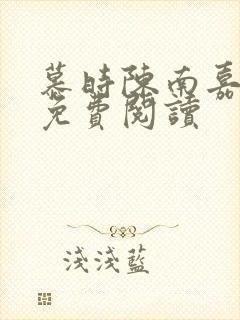 慕時陳南嘉
免費閱讀
淺淺藍